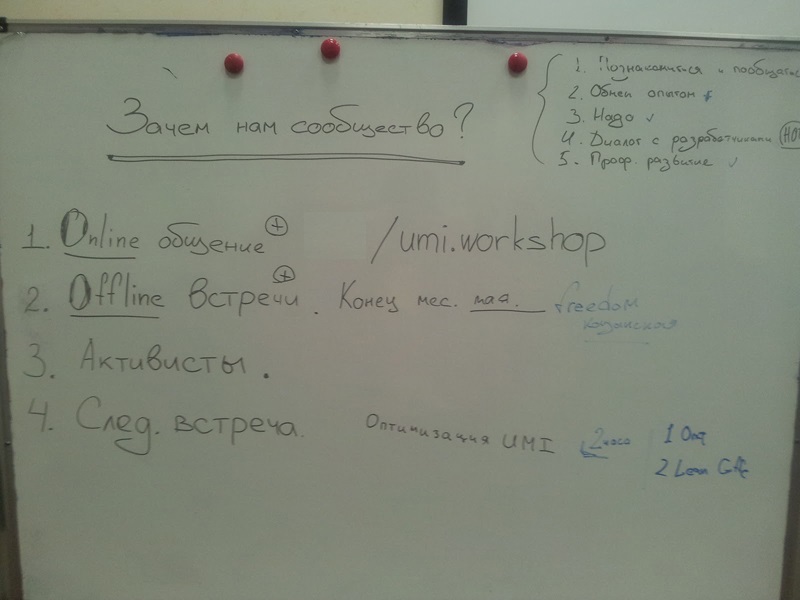 Зачем нам сообщество?
1. Познакомиться и пообщаться
2. Обмен опытом
3. Надо ✓
4. Диалог с разработчиками
5. Проф. развитие ✓
1. Online общение + /umi.workshop
2. Offline встречи + . Конец мес. мая. freedom
казанская
3. Активисты.
4. След. встреча. Оптимизация UMI 2 часа
1
2 Lean